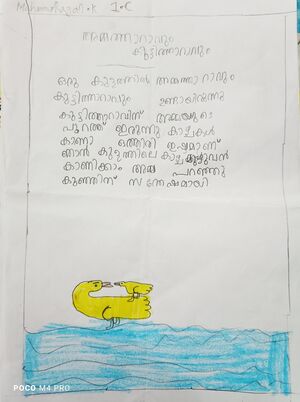 Muhammad
.K 1.C
അമ്മത്താറാവും
കുട്ടിത്താറാവും
ഒരു കുളത്തിൽ അമ്മത്താറാവും
കുട്ടിത്താറാവും ഉണ്ടായിരുന്നു
കുട്ടിത്താറാവിന് അമ്മയുടെ
പുറത്ത് ഇരുന്നു കാഴ്ചകൾ
കാണാ ഒത്തിരി ഇഷ്ടമാണ്
ഞാൻ കുളത്തിലെ കാഴ്ച മുഴുവൻ
കാണിക്കാം അമ്മ പറഞ്ഞു
കുഞ്ഞിന് സന്തോഷമായി
POCO M4 PRO